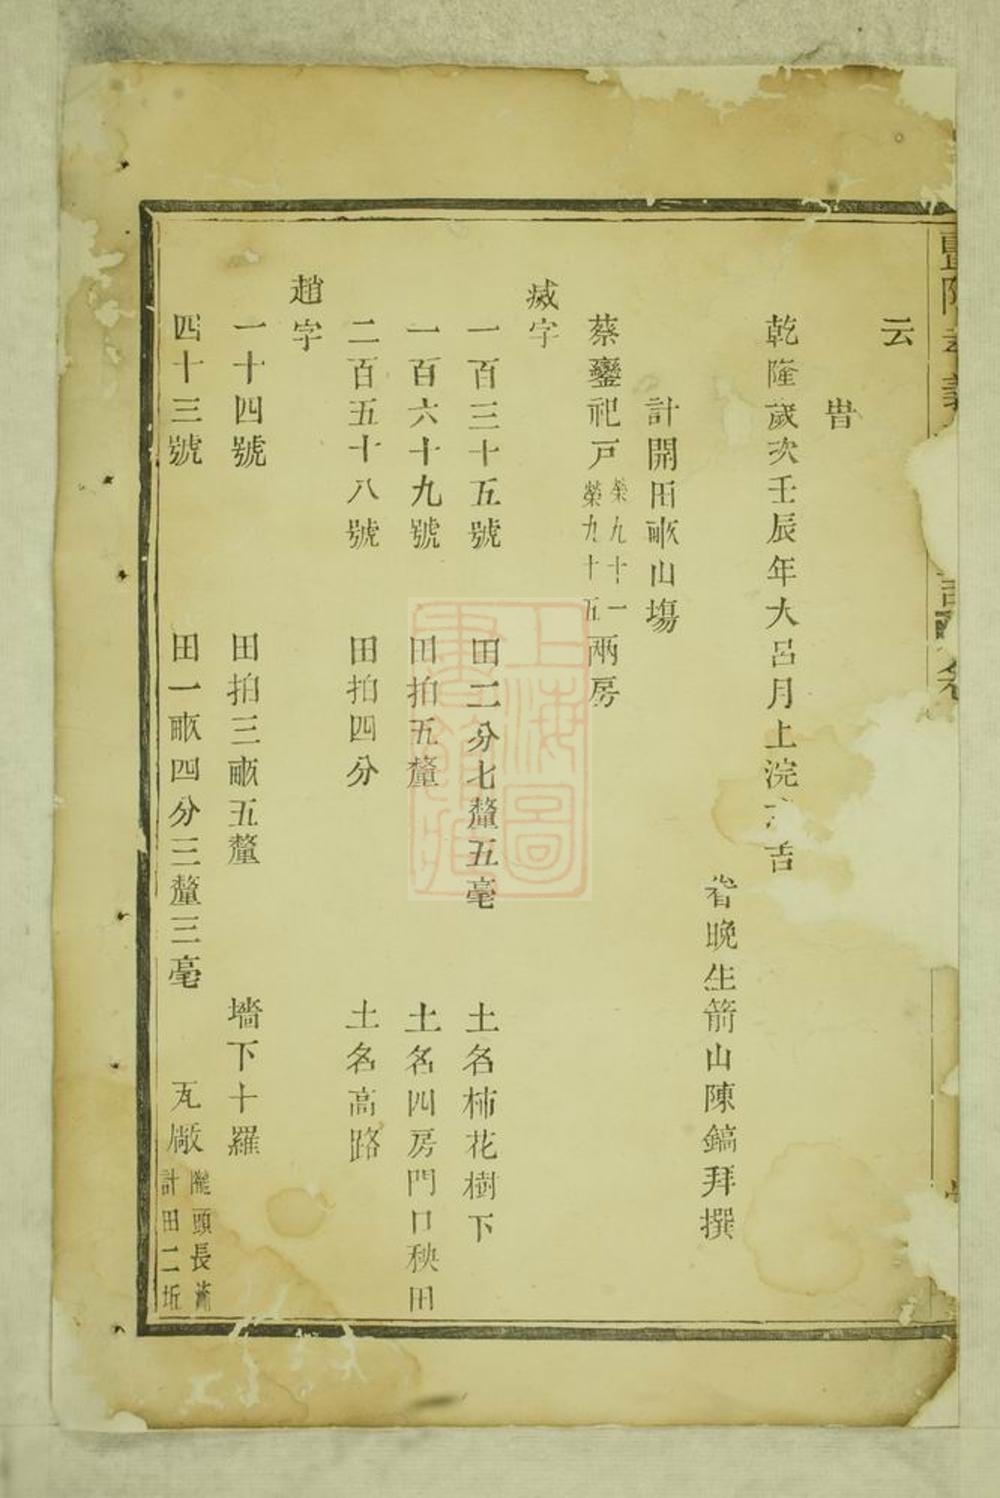 云
旹
乾隆歲次壬辰年大呂月上浣 吉
眷晚生箭山陳鎬拜撰
計開田畝山塲
蔡鑾祀戸榮九十一榮九十五兩房
烕字
一百三十五號 田二分七釐五毫 土名柿花樹下
一百六十九號 田拍五釐 土名四房門口秧田
二百五十八號 田拍四分 土名高路
趙字
一十四號 田拍三畝五釐 墻下十羅
四十三號 田一畝四分三釐三毫 瓦厰隴頭長 計田二坵
上海圖書館藏